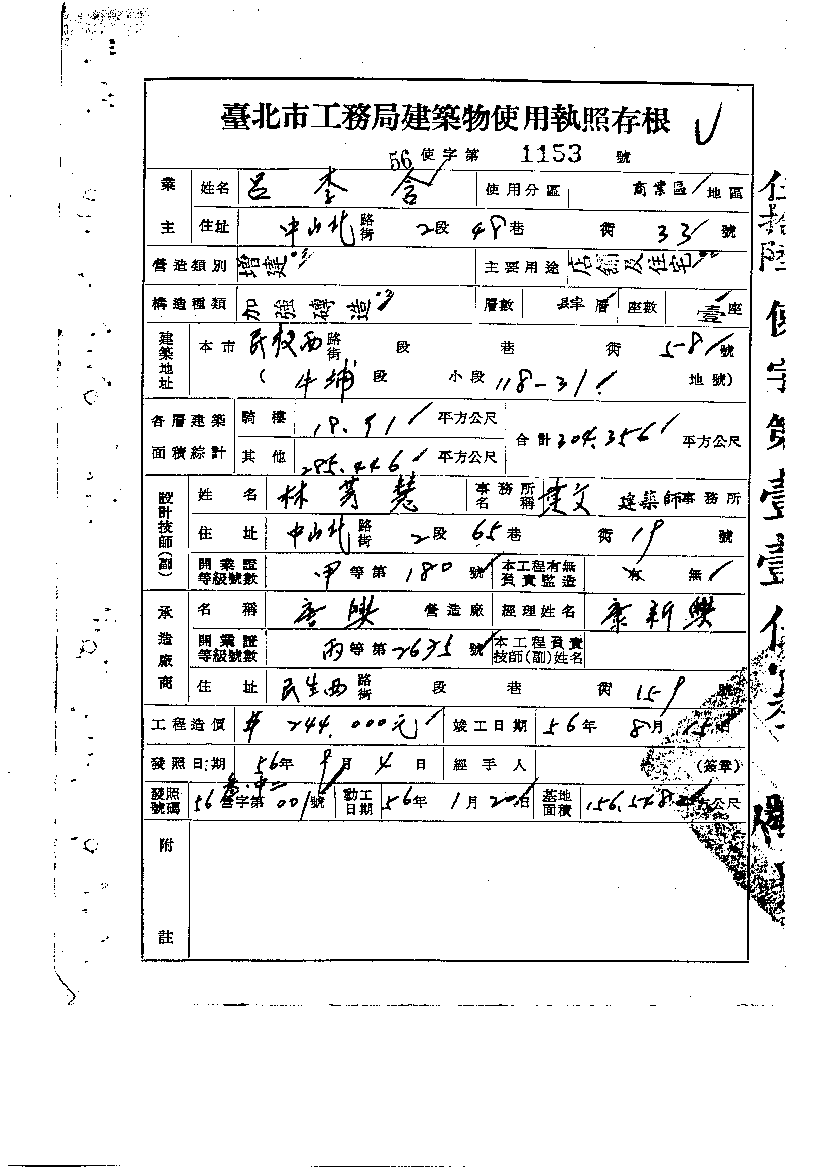 臺北市工務局建築物使用執照存根
56 使字第 1153 號
業主 姓名 呂李含 使用分區 商業區 地區
住址 中山北路街 2段 48巷 街 33號
營造類別 增建 主要用途 店舖及住宅
構造種類 加強磚造 層數 層 座數 壹座
建築地址 本市 民權西路街 段 巷 街 58號
(牛埔段 小段 118-31 地號)
各層建築面積綜計 騎樓 18.91 平方公尺 合計 304.356 平方公尺
其他 285.446 平方公尺
設計技師(副) 姓名 林菁慧 事務所名稱 建文 建築師事務所
住址 中山北路街 2段 65巷 街 19號
開業證等級號數 甲等第 180 號 本工程有無負責監造 有 無
承造廠商 名稱 營造廠 經理姓名 康新興
開業證等級號數 丙等第 2635 號 本工程負責技師(副)姓名
住址 民生西路街 段 巷 街 159號
工程造價 244.000元 竣工日期 56年 8月 15日
發照日期 56年 9月 4日 經手人 (簽章)
發照號碼 56營字第001號 動工日期 56年 1月 20日 基地面積 156.548 平方公尺
附註
伍拾陸使字第壹壹伍